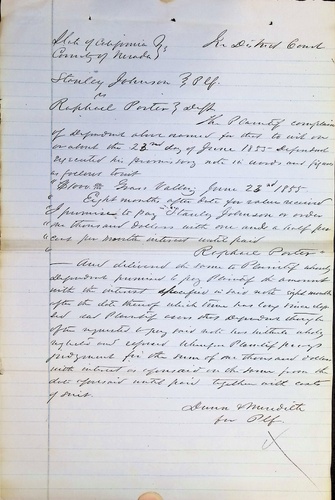 State of California }
County of Nevada } In District Court
Stanley Johnson } Plf
vs
Raphael Porter } Deft
The Plaintiff complains
of Defendant above named for that to wit on or
about the 23rd day of June 1855 Defendant
executed his promissory note in words and figures
as follows to wit
"$1000 Grass Valley June 23rd 1855
Eight months after date for value received
I promise to pay Stanley Johnson or order
one thousand Dollars with one and a half per
cent per month interest until paid
Raphael Porter"
And delivered the same to Plaintiff whereby
Defendant promised to pay Plaintiff the amount
with the interest specified in said note eight months
after the date thereof which time has long since elapsed
and Plaintiff avers that Defendant though
often requested to pay said note has wholly
neglected and refused Wherefore Plaintiff prays
judgment for the sum of one thousand Dollars
with interest as aforesaid on the same from the
date aforesaid until paid together with costs
of suit.
Dunn & Meredith
for Plf